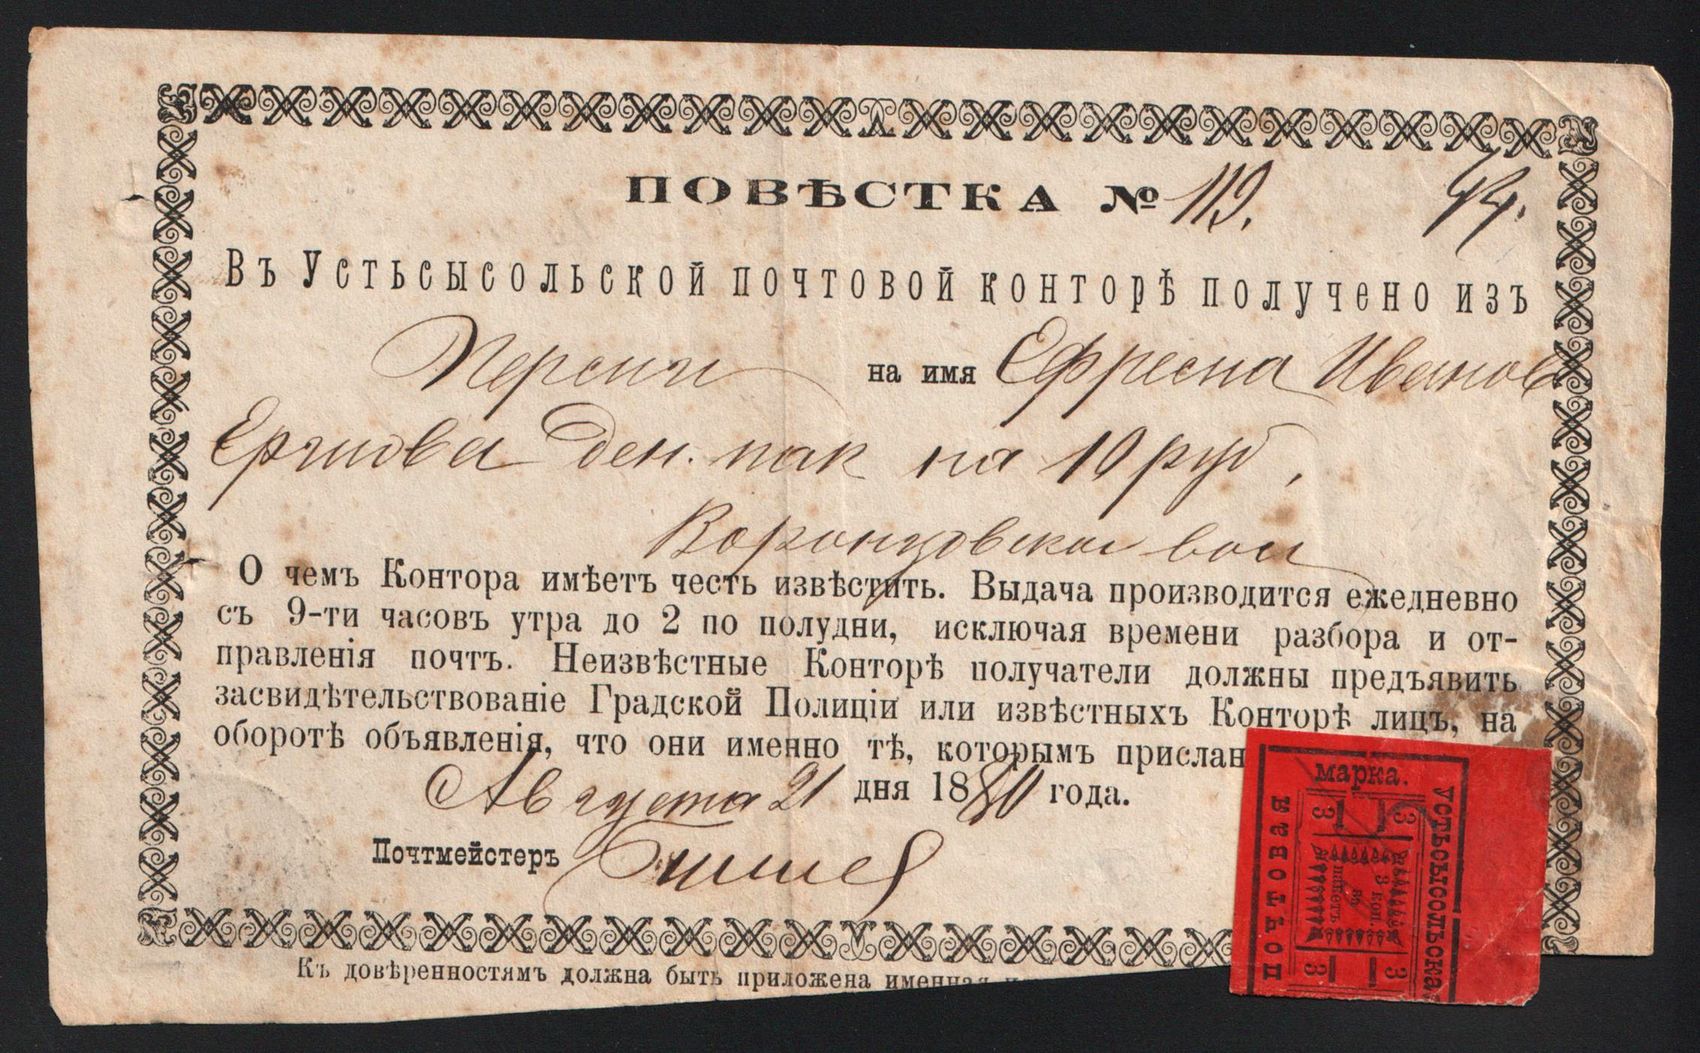 ПОВѢСТКА № 119.
Въ Устьсысольской почтовой конторѣ получено изъ
Персии на имя Ефресна Иванов
ден. пак на 10 руб.
О чемъ Контора имѣетъ честь извѣстить. Выдача производится ежедневно
съ 9-ти часовъ утра до 2 по полудни, исключая времени разбора и от-
правленія почтъ. Неизвѣстные Конторѣ получатели должны предъявить
засвидѣтельствованіе Градской Полиціи или извѣстныхъ Конторѣ лицъ, на
оборотѣ объявленія, что они именно тѣ, которымъ прислан
Августа 21 дня 1880 года.
Почтмейстеръ
Къ довѣренностямъ должна быть приложена именная
УСТЬСЫСОЛЬСКАЯ
ПОЧТОВАЯ
марка.
3 3
3 коп.
въ
пакетъ
3 3